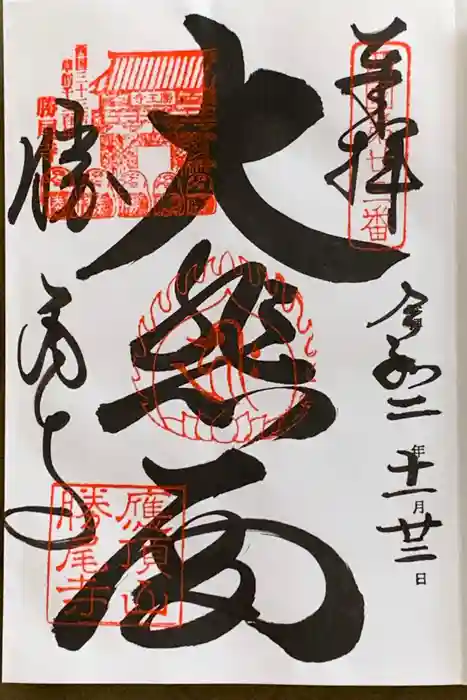 奉拝
西国第廿三番
令和二年十一月廿二日
大悲殿
勝尾寺
應頂山
勝尾寺